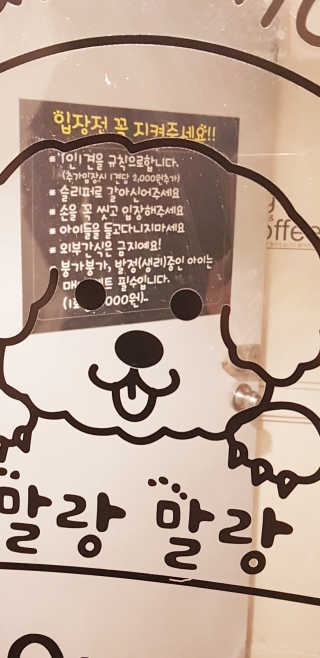 입장전 꼭 지켜주세요!!
1인1견을 규칙으로합니다.
(추가입장시 1견당 2,000원추가)
슬리퍼로 갈아신어주세요
손을 꼭 씻고 입장해주세요
아이들을 들고다니지마세요
외부간식은 금지에요!
붕가붕가, 발정(생리)중인 아이는
필수입니다.
offee
말랑 말랑